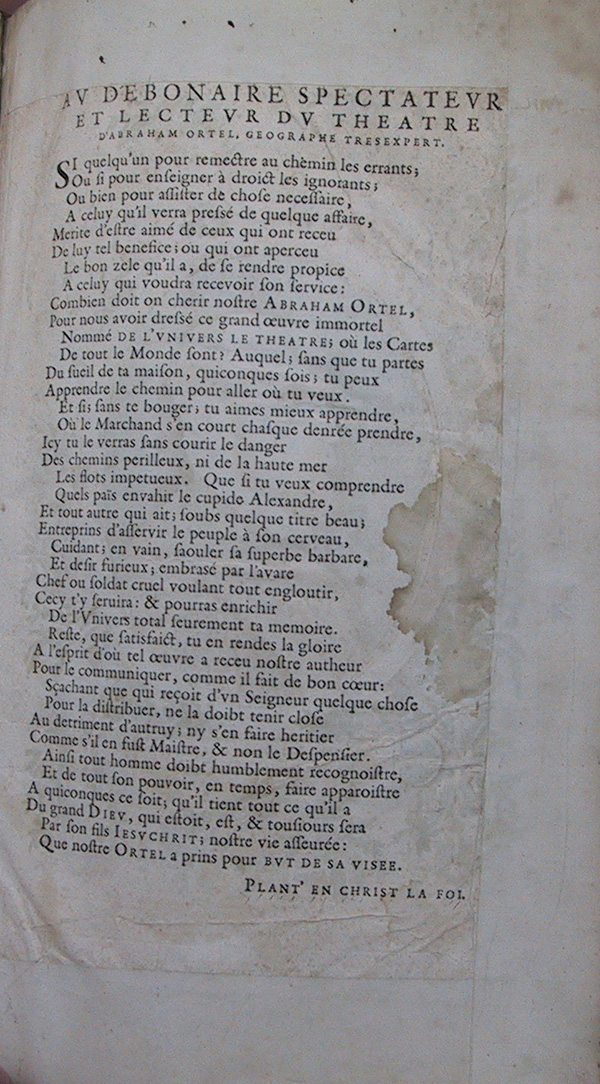 AV DEBONAIRE SPECTATEVR
ET LECTEVR DV THEATRE
D'ABRAHAM ORTEL, GEOGRAPHE TRESEXPERT.
SI quelqu'un pour remectre au chemin les errants;
Ou ſi pour enſeigner à droict les ignorants;
Ou bien pour aſſiſter de choſe neceſſaire,
A celuy qu'il verra preſſé de quelque affaire,
Merite d'eſtre aimé de ceux qui ont receu
De luy tel benefice; ou qui ont aperceu
Le bon zele qu'il a, de ſe rendre propice
A celuy qui voudra recevoir ſon ſervice:
Combien doit on cherir noſtre ABRAHAM ORTEL,
Pour nous avoir dreſſé ce grand œuvre immortel
Nommé DE L'VNIVERS LE THEATRE; où les Cartes
De tout le Monde ſont? Auquel; ſans que tu partes
Du ſueil de ta maiſon, quiconques ſois; tu peux
Apprendre le chemin pour aller où tu veux.
Et ſi; ſans te bouger; tu aimes mieux apprendre,
Où le Marchand s'en court chaſque denrée prendre,
Icy tu le verras ſans courir le danger
Des chemins perilleux, ni de la haute mer
Les flots impetueux. Que ſi tu veux comprendre
Quels païs envahit le cupide Alexandre,
Et tout autre qui ait; ſoubs quelque titre beau;
Entreprins d'aſſervir le peuple à ſon cerveau,
Cuidant; en vain, ſaouler ſa ſuperbe barbare,
Et deſir furieux; embraſé par l'avare
Chef ou ſoldat cruel voulant tout engloutir,
Cecy t'y ſeruira: & pourras enrichir
De l'Vnivers total ſeurement ta memoire.
Reſte, que ſatisfaict, tu en rendes la gloire
A l'eſprit d'où tel œuvre a receu noſtre autheur
Pour le communiquer, comme il fait de bon cœur:
Sçachant que qui reçoit d'vn Seigneur quelque choſe
Pour la diſtribuer, ne la doibt tenir cloſe
Au detriment d'autruy; ny s'en faire heritier
Comme s'il en fuſt Maiſtre, & non le Deſpenſier.
Ainſi tout homme doibt humblement recognoiſtre,
Et de tout ſon pouvoir, en temps, faire apparoiſtre
A quiconques ce ſoit; qu'il tient tout ce qu'il a
Du grand DIEV, qui eſtoit, eſt, & touſiours ſera
Par ſon fils IESVCHRIT; noſtre vie aſſeurée:
Que noſtre ORTEL a prins pour BVT DE SA VISEE.
PLANT' EN CHRIST LA FOI.